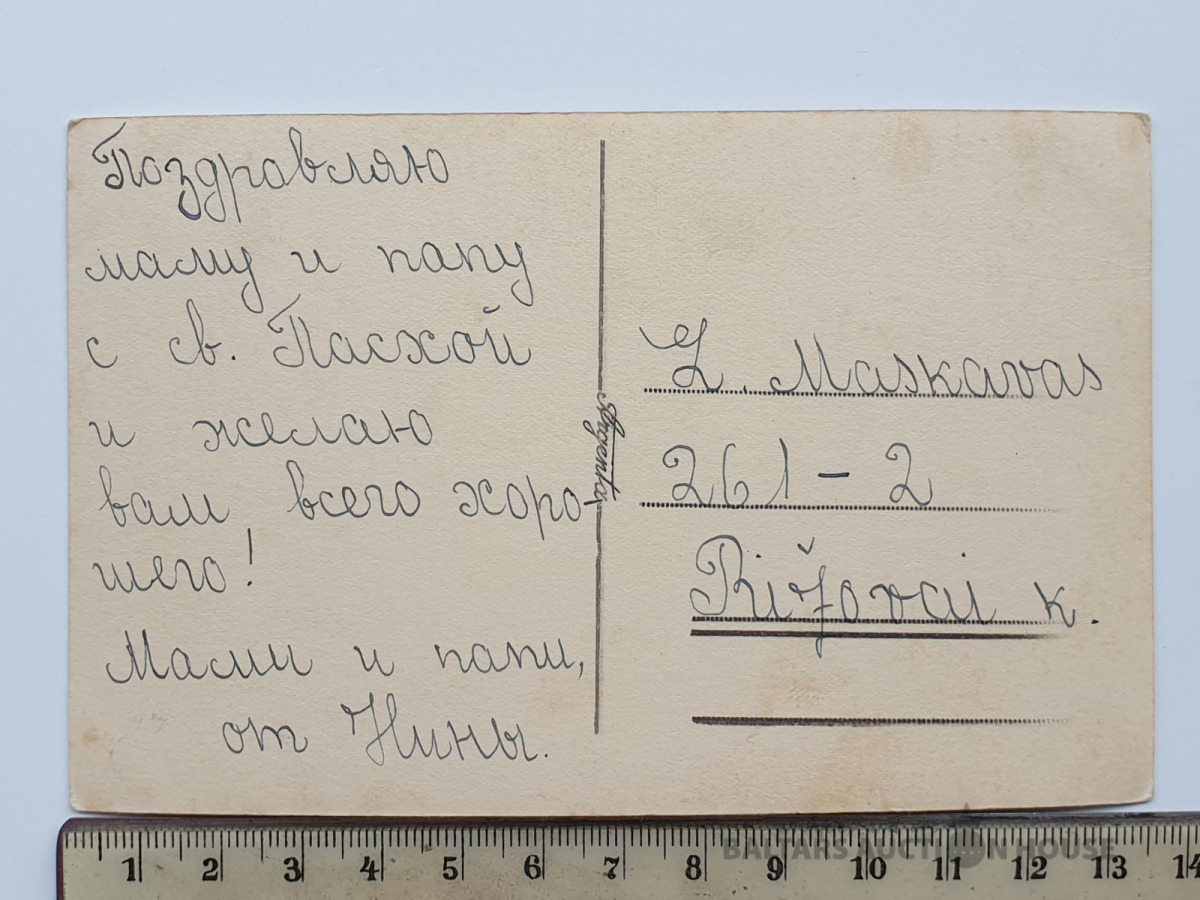 Поздравляю
маму и папу
с св. Пасхой
и желаю
вам всего хоро-
шего!
Мами и папи,
от Нины.
Argenta
L. Maskavas
261-2
Rižovai k.
1 2 3 4 5 6 7 8 9 10 11 12 13 14
BALTARS AUCTION HOUSE